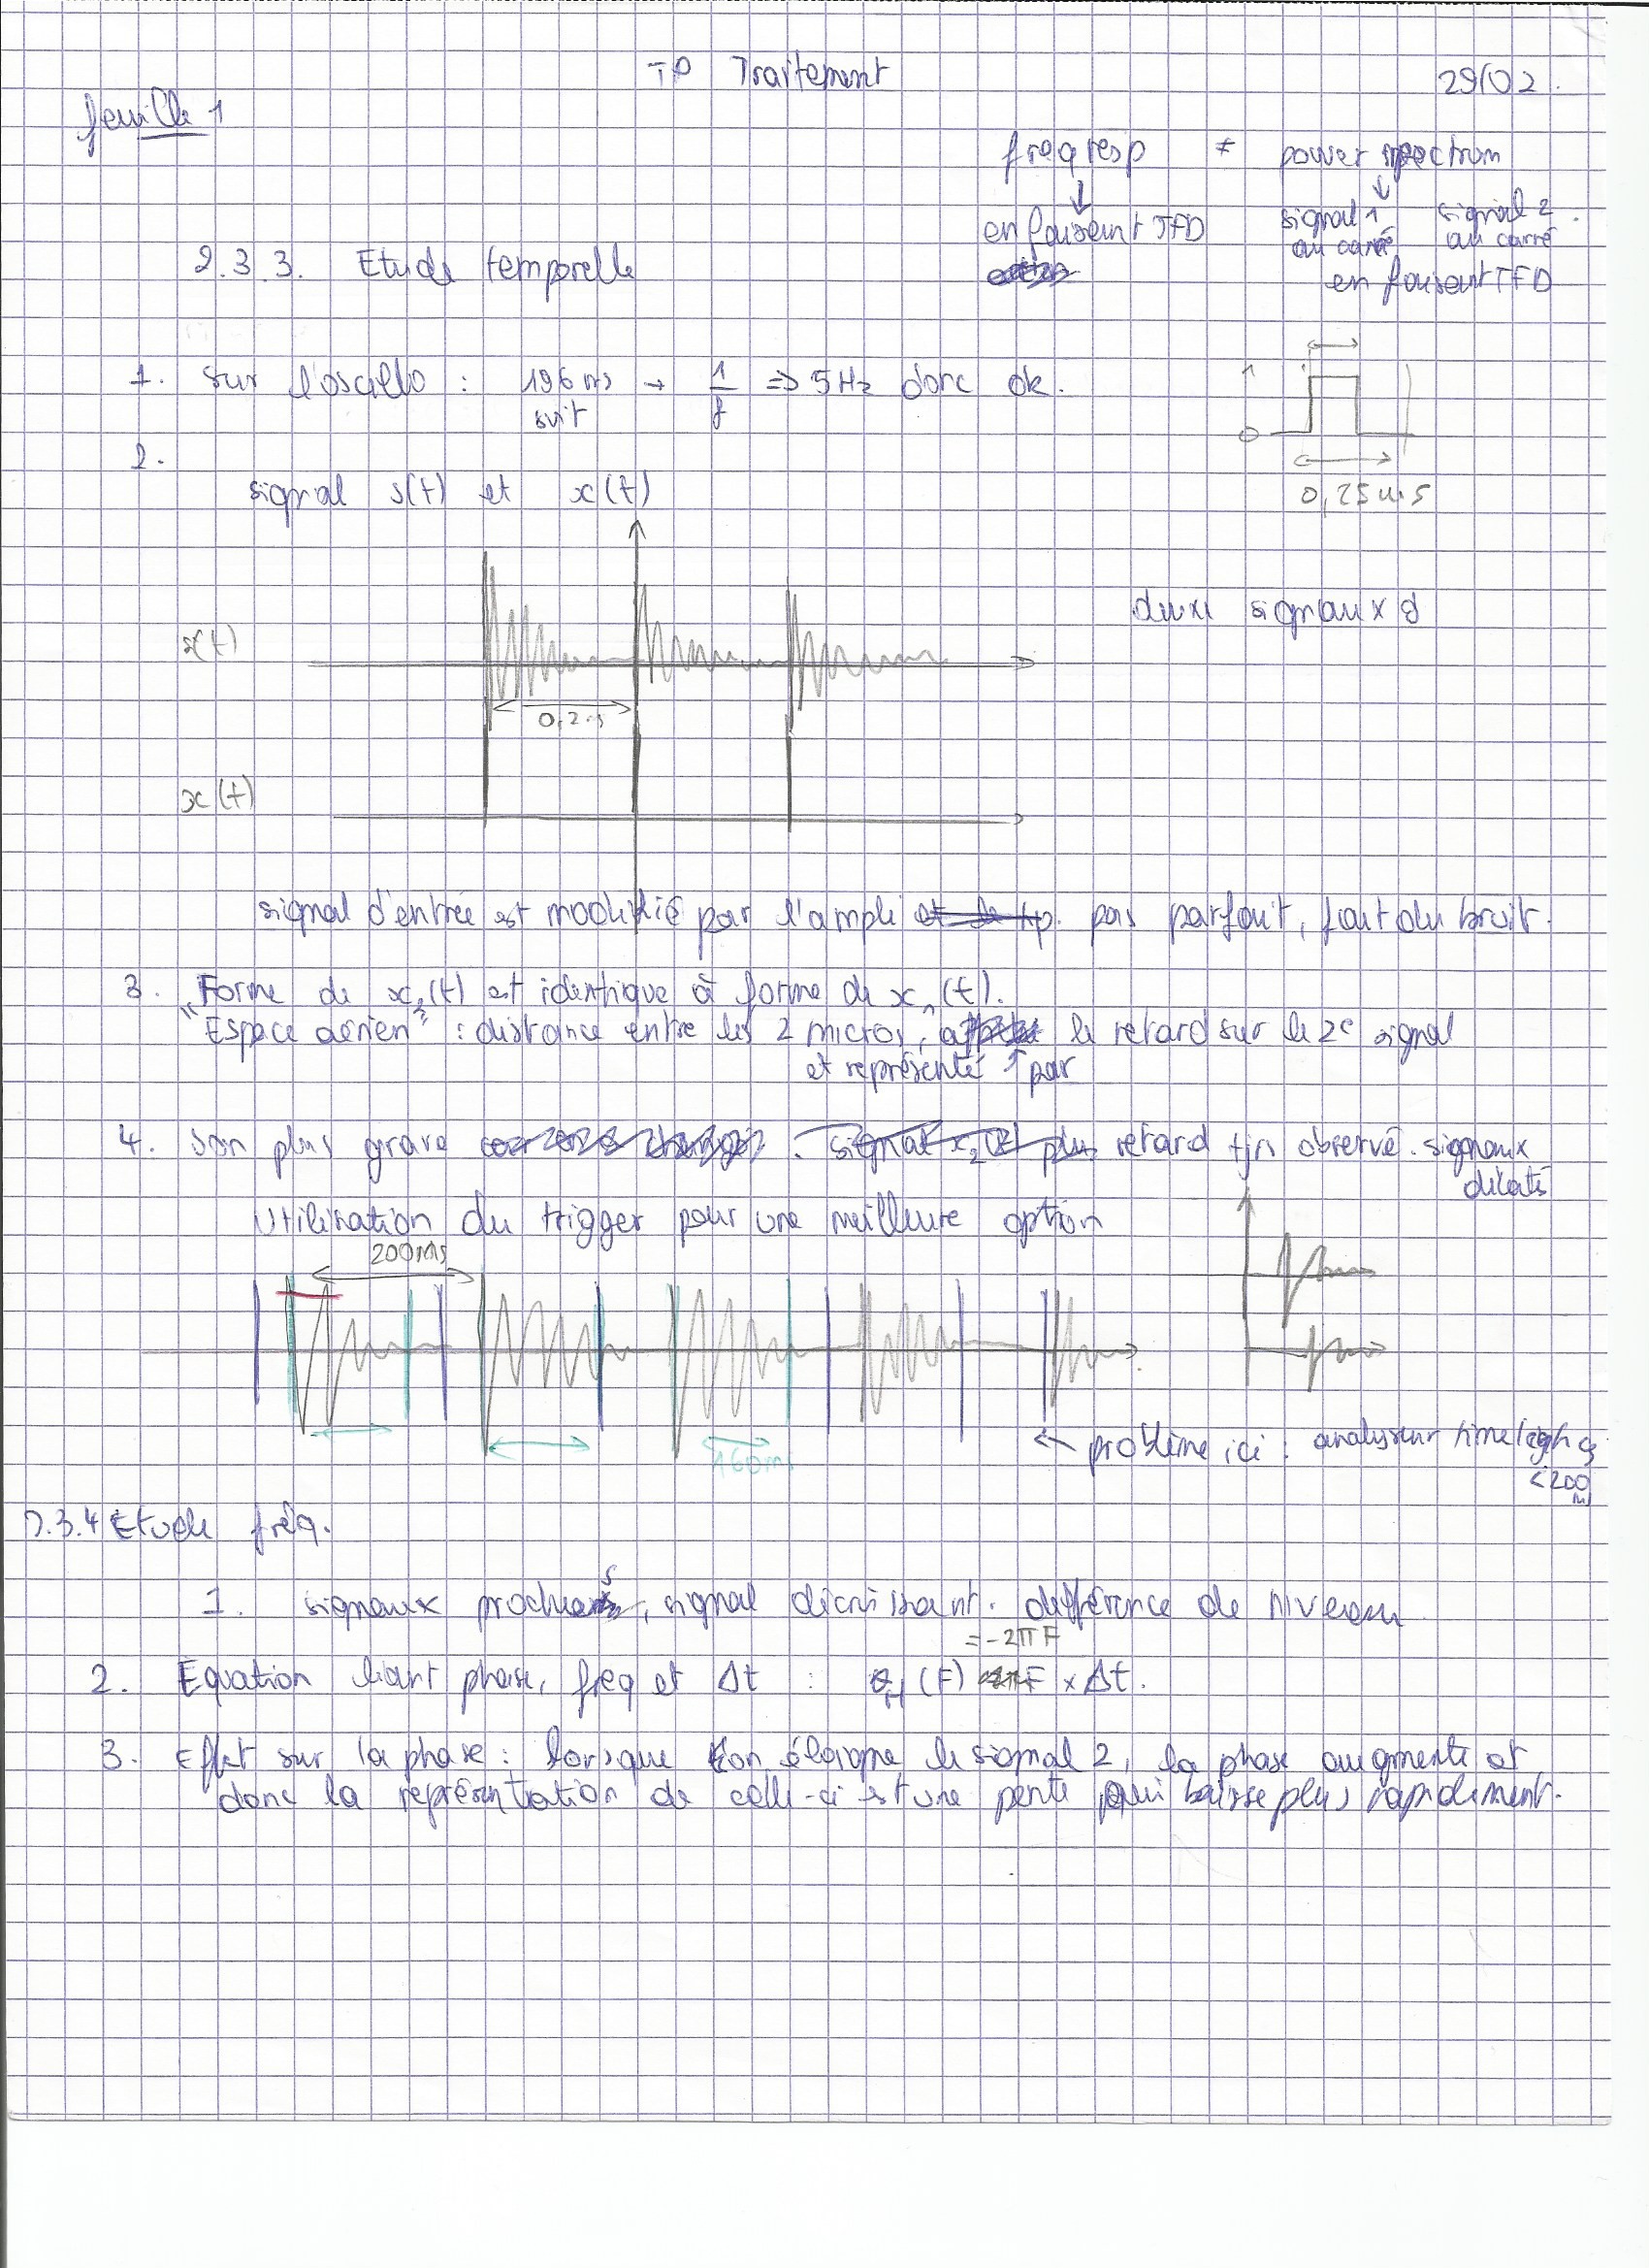 TP Traitement 29/02.
feuille 1
freq resp ≠ power spectrum
↓ ↓
en faisant TFD signal 1 signal 2.
au carré au carré
en faisant TFD
2.3.3. Etude temporelle
1. Sur l'oscillo : 196 ms → 1/f => 5Hz donc ok.
soit
1
0
0,25 ms
2.
signal s(t) et x(t)
deux signaux
0,2 s
x(t)
signal d'entrée est modifié par l'ampli pas parfait, fait du bruit.
3. "Forme de x2(t) est identique à forme de x1(t).
"Espace aérien" : distance entre les 2 micros, le retard sur le 2e signal
et représenté ↑ par
4. Son plus grave retard tjs observé. signaux
dilatés
Utilisation du trigger pour une meilleure option
200ms
160ms
← problème ici : analyseur time length
<200
ms
2.3.4 Etude fréq.
1. signaux proches, signal décroissant. différence de niveau
= -2πF
2. Equation liant phase, freq et Δt : (F) × Δt.
3. Effet sur la phase : lorsque l'on éloigne le signal 2, la phase augmente et
donc la représentation de celle-ci est une pente qui baisse plus rapidement.